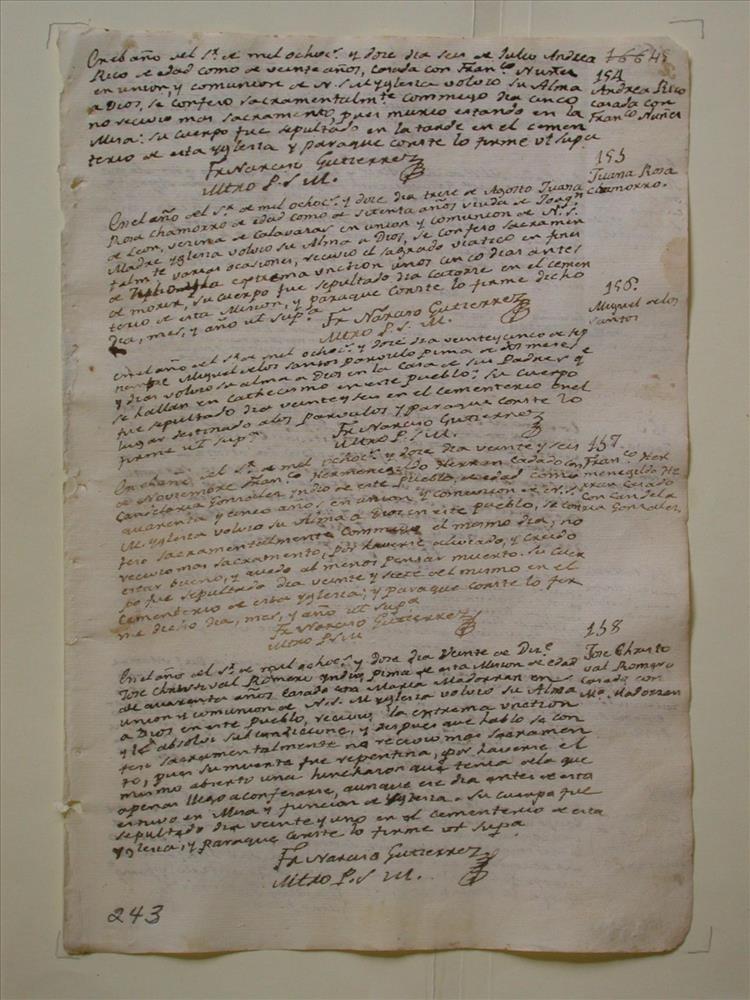 En el año del Sr. de mil ochocs. y dose dia seis de Julio Andrea
Rico de edad como de veinte años, casada con Franco. Nuñez
en union, y comunion de N. S. M. Yglesia volvio su Alma
a Dios, se confeso sacramentalmte. commigo dia cinco
no recivio mas sacramento, pues murio estando en la
Misa: su cuerpo fue sepultado en la tarde en el cemen
terio de esta Yglesia y paraque conste lo firme ut supa
Fr. Narciso Gutierrez
Mtro P. S. M.
16645
154
Andrea Rico
casada con
Franco Nuñez
En el año del Sr. de mil ochocs. y dose dia trese de Agosto Juana
Rosa Chamorro de edad como de setenta años viuda de Joaqn
de Leon, vecina de Calavasas en union y comunion de N. S.
Madre Yglesia volvio su Alma a Dios, se confeso sacramen
talmte varias ocasiones, recivio el sagrado viatico en fines
de la extrema unction unos cinco dias antes
de morir, su cuerpo fue sepultado dia catorse en el cemen
terio de esta Mision, y paraque conste lo firme dicho
dia, mes, y año ut supa.
Fr. Narciso Gutierrez
Mtro P. S. M.
155
Juana Rosa
Chamorro.
En el año del Sr. de mil ochocs. y dose dia veinte y cinco de sep
tiembre Miguel de los Santos parvulo Pima de dos meses
y dias volvio su alma a Dios en la Casa de sus Padres q
se hallan en Cathecismo en este Pueblo: su cuerpo
fue sepultado dia veinte y seis en el cementerio en el
lugar destinado a los Parvulos y paraque conste lo
firme ut supa
Fr. Narciso Gutierrez
Mtro P. S. M.
156.
Miguel de los
santos
En el año del Sr. de mil ochocs. y dose dia veinte y seis
de Noviembre Franco Hermenegildo Herran casado con
Candelaria Gonzalez Indio de este Pueblo, de edad como
quarenta y cinco años, en union y comunion de N. S.
M. Yglesia volvio su Alma a Dios en este pueblo, se con
feso sacramentalmente commigo el mismo dia, no
recivio mas sacramento, por haverse aliviado, y creido
estar bueno, y quedo al menos pensar muerto. Su cuer
po fue sepultado dia veinte y siete del mismo en el
cementerio de esta Yglesia; y paraque conste lo fir
me dicho dia, mes, y año ut supa
Fr. Narciso Gutierrez
Mtro P. S. M.
157
Franco Her
menegildo He
rran casado
con Candela
ria Gonzalez
En el año del Sr. de mil ochocs. y dose dia veinte de Dice.
Jose Christoval Romero Yndio Pima de esta Mision de edad
de quarenta años casado con Maria Madorran en
union y comunion de N. S. M Yglesia volvio su Alma
a Dios en este pueblo, recivio la extrema unction
y le absolvi sub condicione, y despues que hablo se con
feso sacramentalmente no recivio mas sacramen
to, pues su muerte fue repentina, por haverse el
mismo abierto una hincharon que tenia de la que
apenas llego a confesarse, aunque ese dia antes de esta
estuvo en Misa y funcion de Yglesia. Su cuerpo fue
sepultado dia veinte y uno en el cementerio de esta
Yglesia, y paraque conste lo firme ut supa
Fr. Narciso Gutierrez
Mtro P. S. M.
158
Jose Christo
val Romero
casado con
Ma. Madorran
243